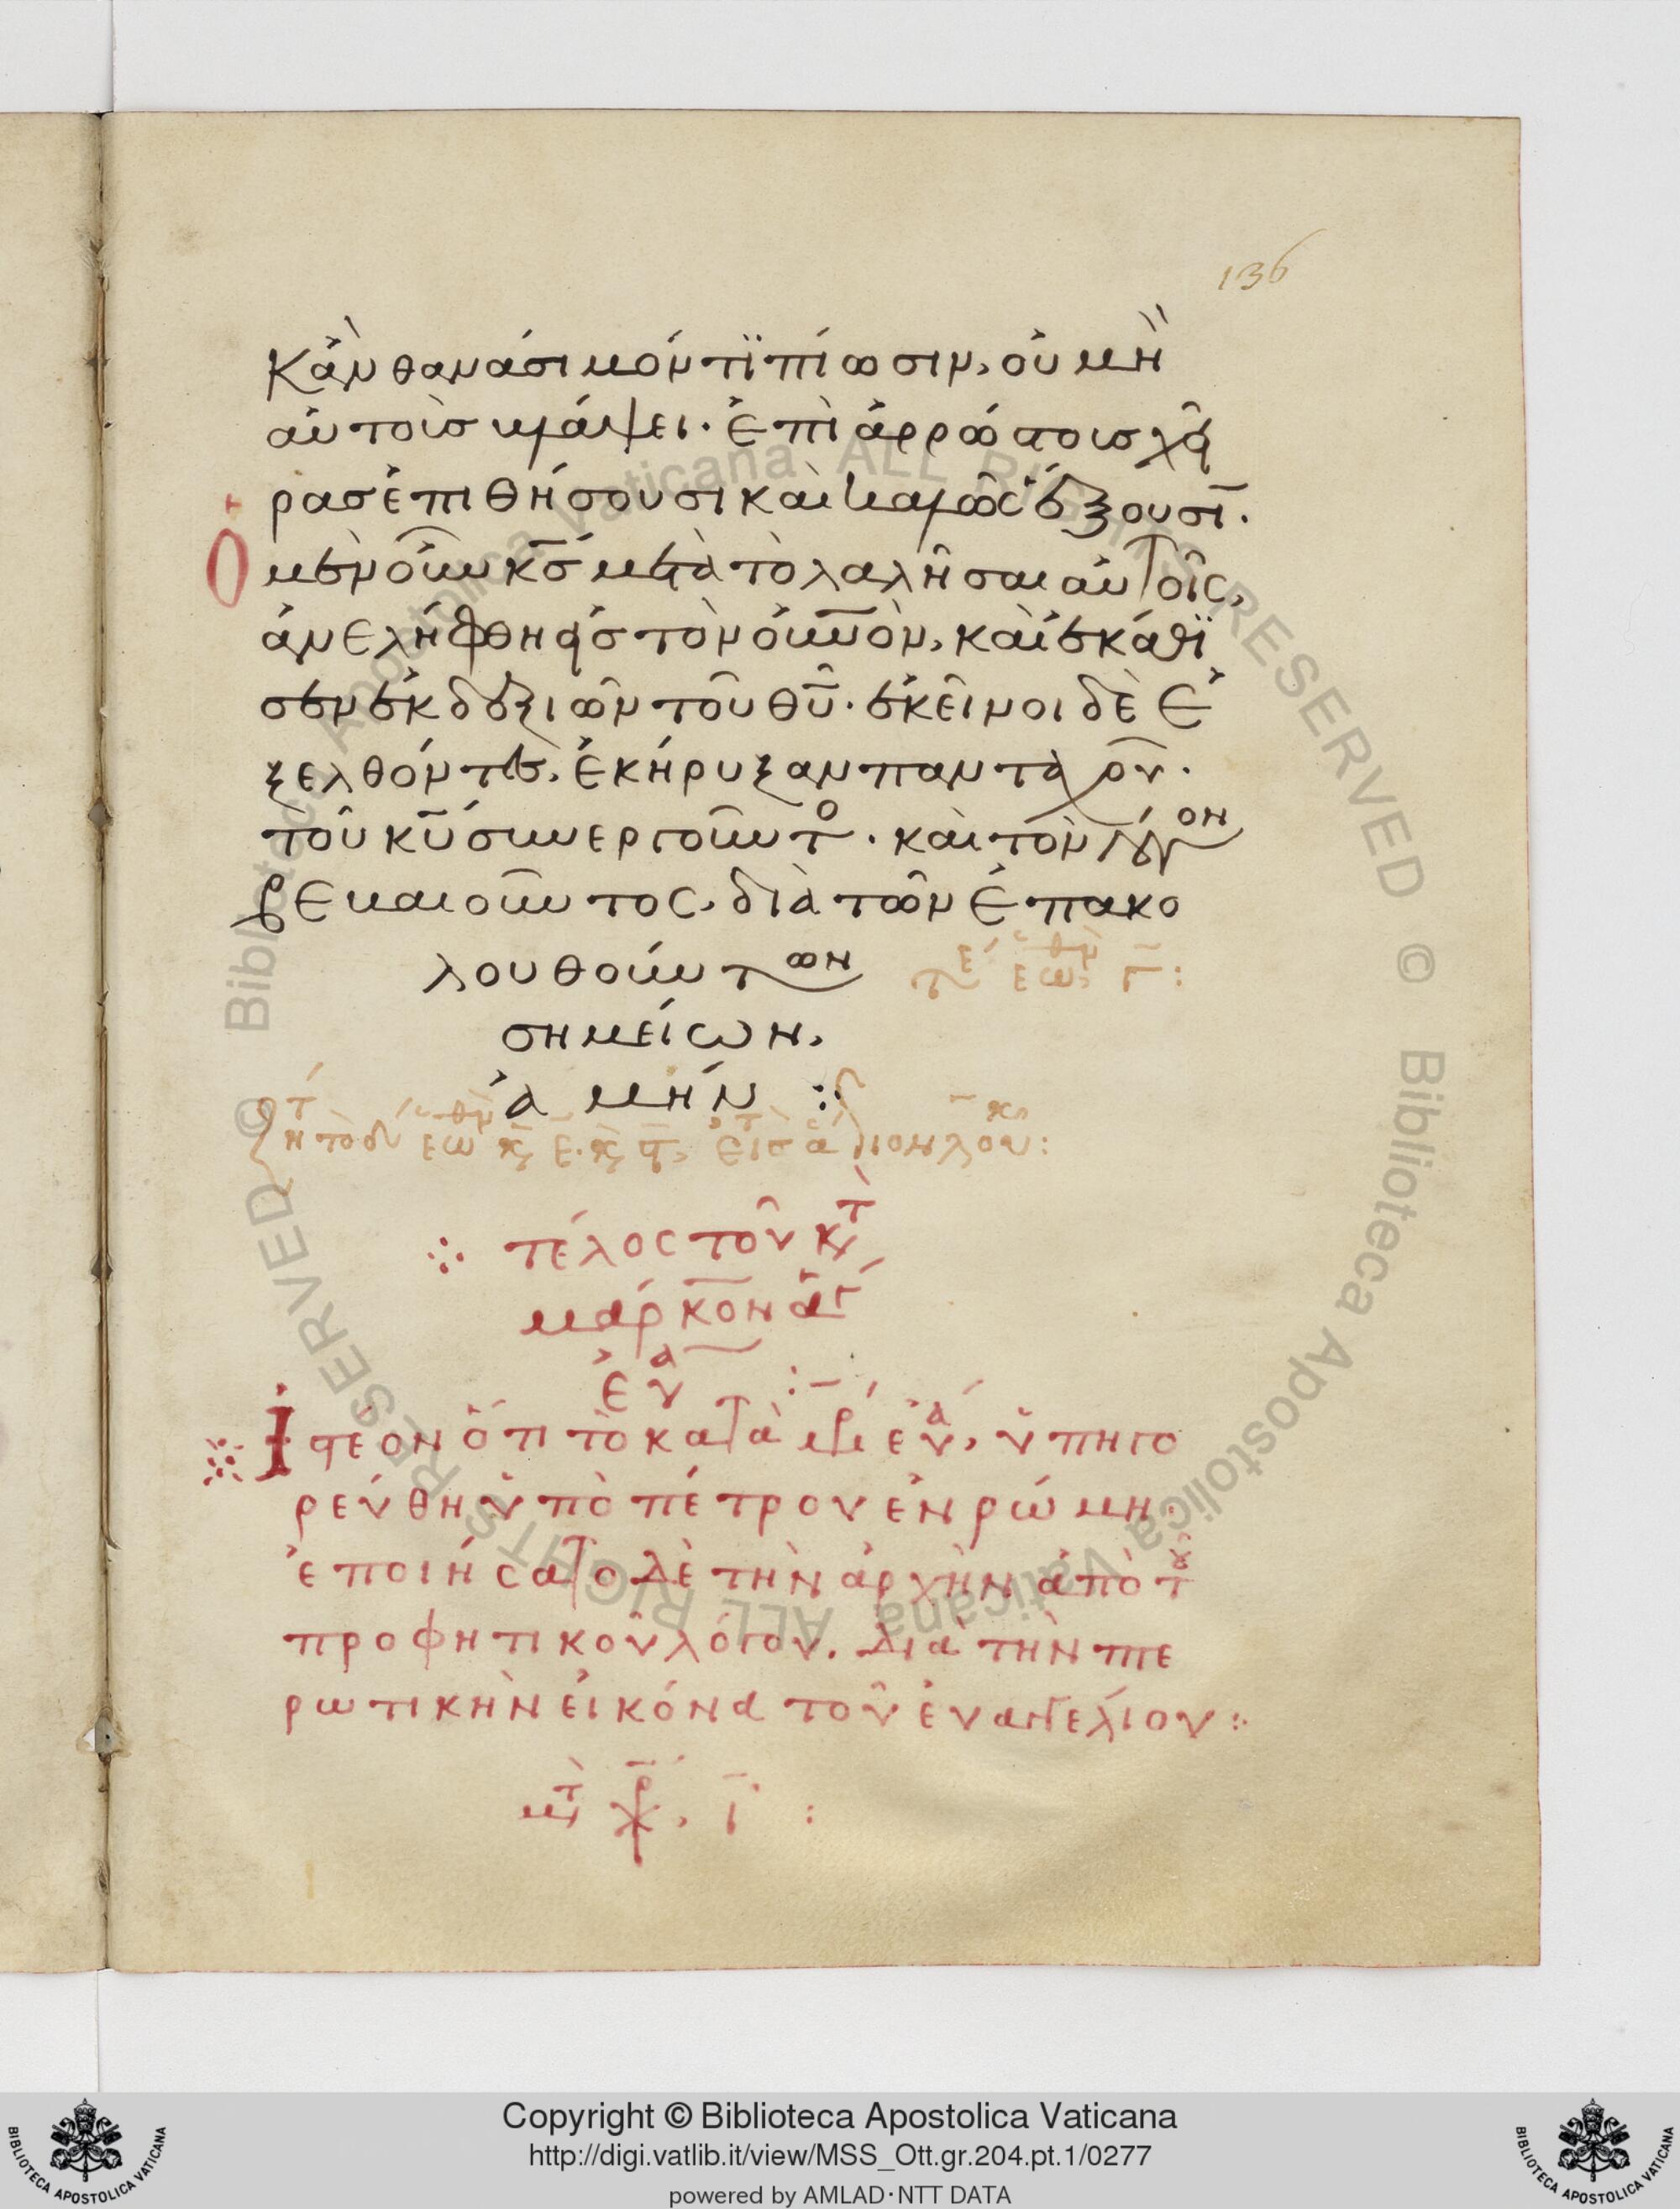 136
κἂν θανάσιμόν τϊ πίωσιν, οὐ μὴ
αὐτοὺσ βλάψει· ἐπὶ ἀρρώστουσ χεῖ
ρασ ἐπιθήσουσι καὶ καλῶς ἕξουσῑ·
Ὁ μὲν οὖν κ̅σ̅ μετὰ τὸ λαλῆσαι αὐτοῖς,
ἀνελήφθη εἰσ τὸν οὐ̅νο̅ν, καὶ ἐκάθϊ
σεν ἐκ δεξιῶν τοῦ θ̅υ̅· ἐκεῖνοι δὲ ἐ
ξελθόντεσ, ἐκήρυξαν πανταχοῦ·
τοῦ κ̅υ̅ συνεργοῦντο· καὶ τὸν λόγον
βεβαιοῦντος, διὰ τῶν ἐπακο
λουθούντων
σημείων,
ἀμήν :
τέλος τοῦ κτ
μάρκον ἁγ
εὐα :–
Ἰστέον ὅτι τὸ κατὰ μρ εὐα, ὑπηγο
ρεύθη ὑπὸ πέτρου ἐν ρώμη·
ἐποιήσατο δὲ τὴν ἀρχὴν ἀπὸ τοῦ
προφητικοῦ λόγου. διὰ τὴν πτε
ρωτικὴν εἰκόνα τοῦ εὐαγγελίου :
Copyright © Biblioteca Apostolica Vaticana
http://digi.vatlib.it/view/MSS_Ott.gr.204.pt.1/0277
powered by AMLAD·NTT DATA
BIBLIOTECA APOSTOLICA VATICANA
BIBLIOTECA APOSTOLICA VATICANA